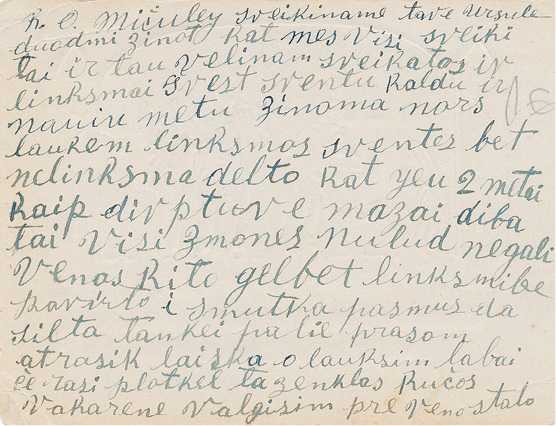 N. C. Mičuley sveikiname tave Ursule
duodmi žinot kat mes visi sveiki
tai ir tau velinam sveikatos ir
linksmai svest sventu Kaldu ir
nauiu metu žinoma nors
laukem linksmos sventes bet
nelinksma delto Kat yeu 2 metai
Kaip dirptuve mazai diba
tai visi žmones nulud negali
venas Kito gelbet linksmibe
pavirto i smutka pasmus da
silta tankei pa lie prasom
atrasik laiška o lauksim labai
če rasi plotkel ta zenklas Kučos
Vakarene valgisim pre veno stalo